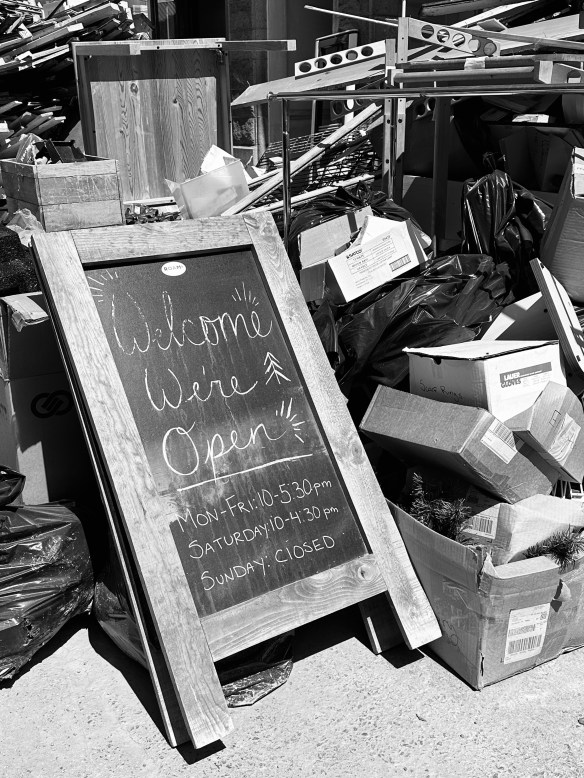 Welcome
We're
Open
MON-FRI: 10-5:30pm
SATURDAY: 10-4:30pm
SUNDAY: CLOSED
LAUER
GLOVES